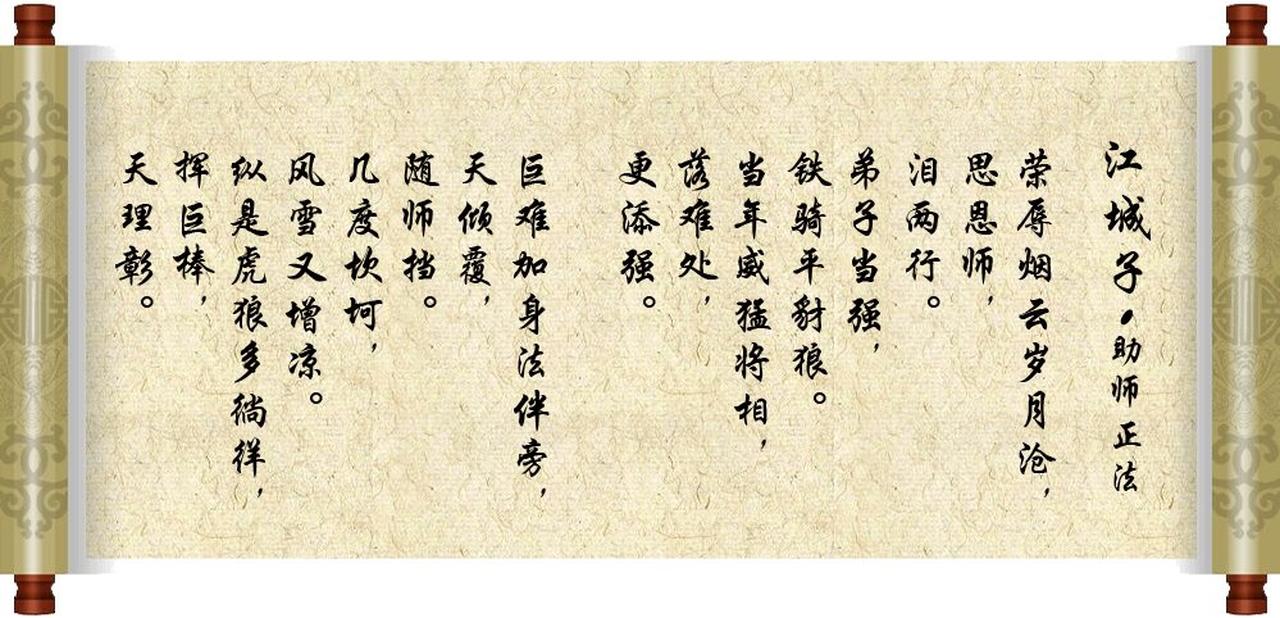 江城子·助师正法
荣辱烟云岁月沧，
思恩师，
泪两行。
弟子当强，
铁骑平豺狼。
当年威猛将相，
落难处，
更添强。
巨难加身法伴旁，
天倾覆，
随师挡。
几度坎坷，
风雪又增凉。
纵是虎狼多徜徉，
挥巨棒，
天理彰。